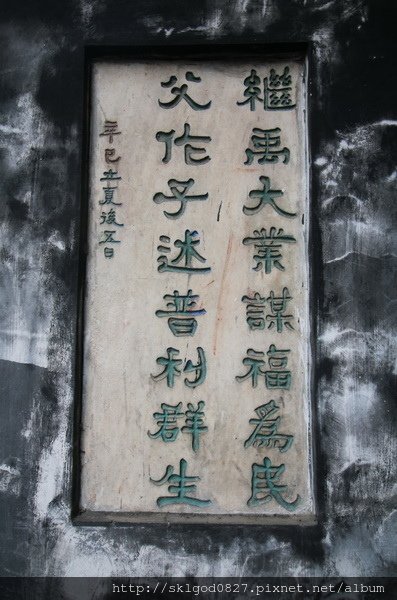 繼禹大業謀福為民
父作子述普利群生
辛巳立夏後五日
http://sklgod0827.pixnet.net/album